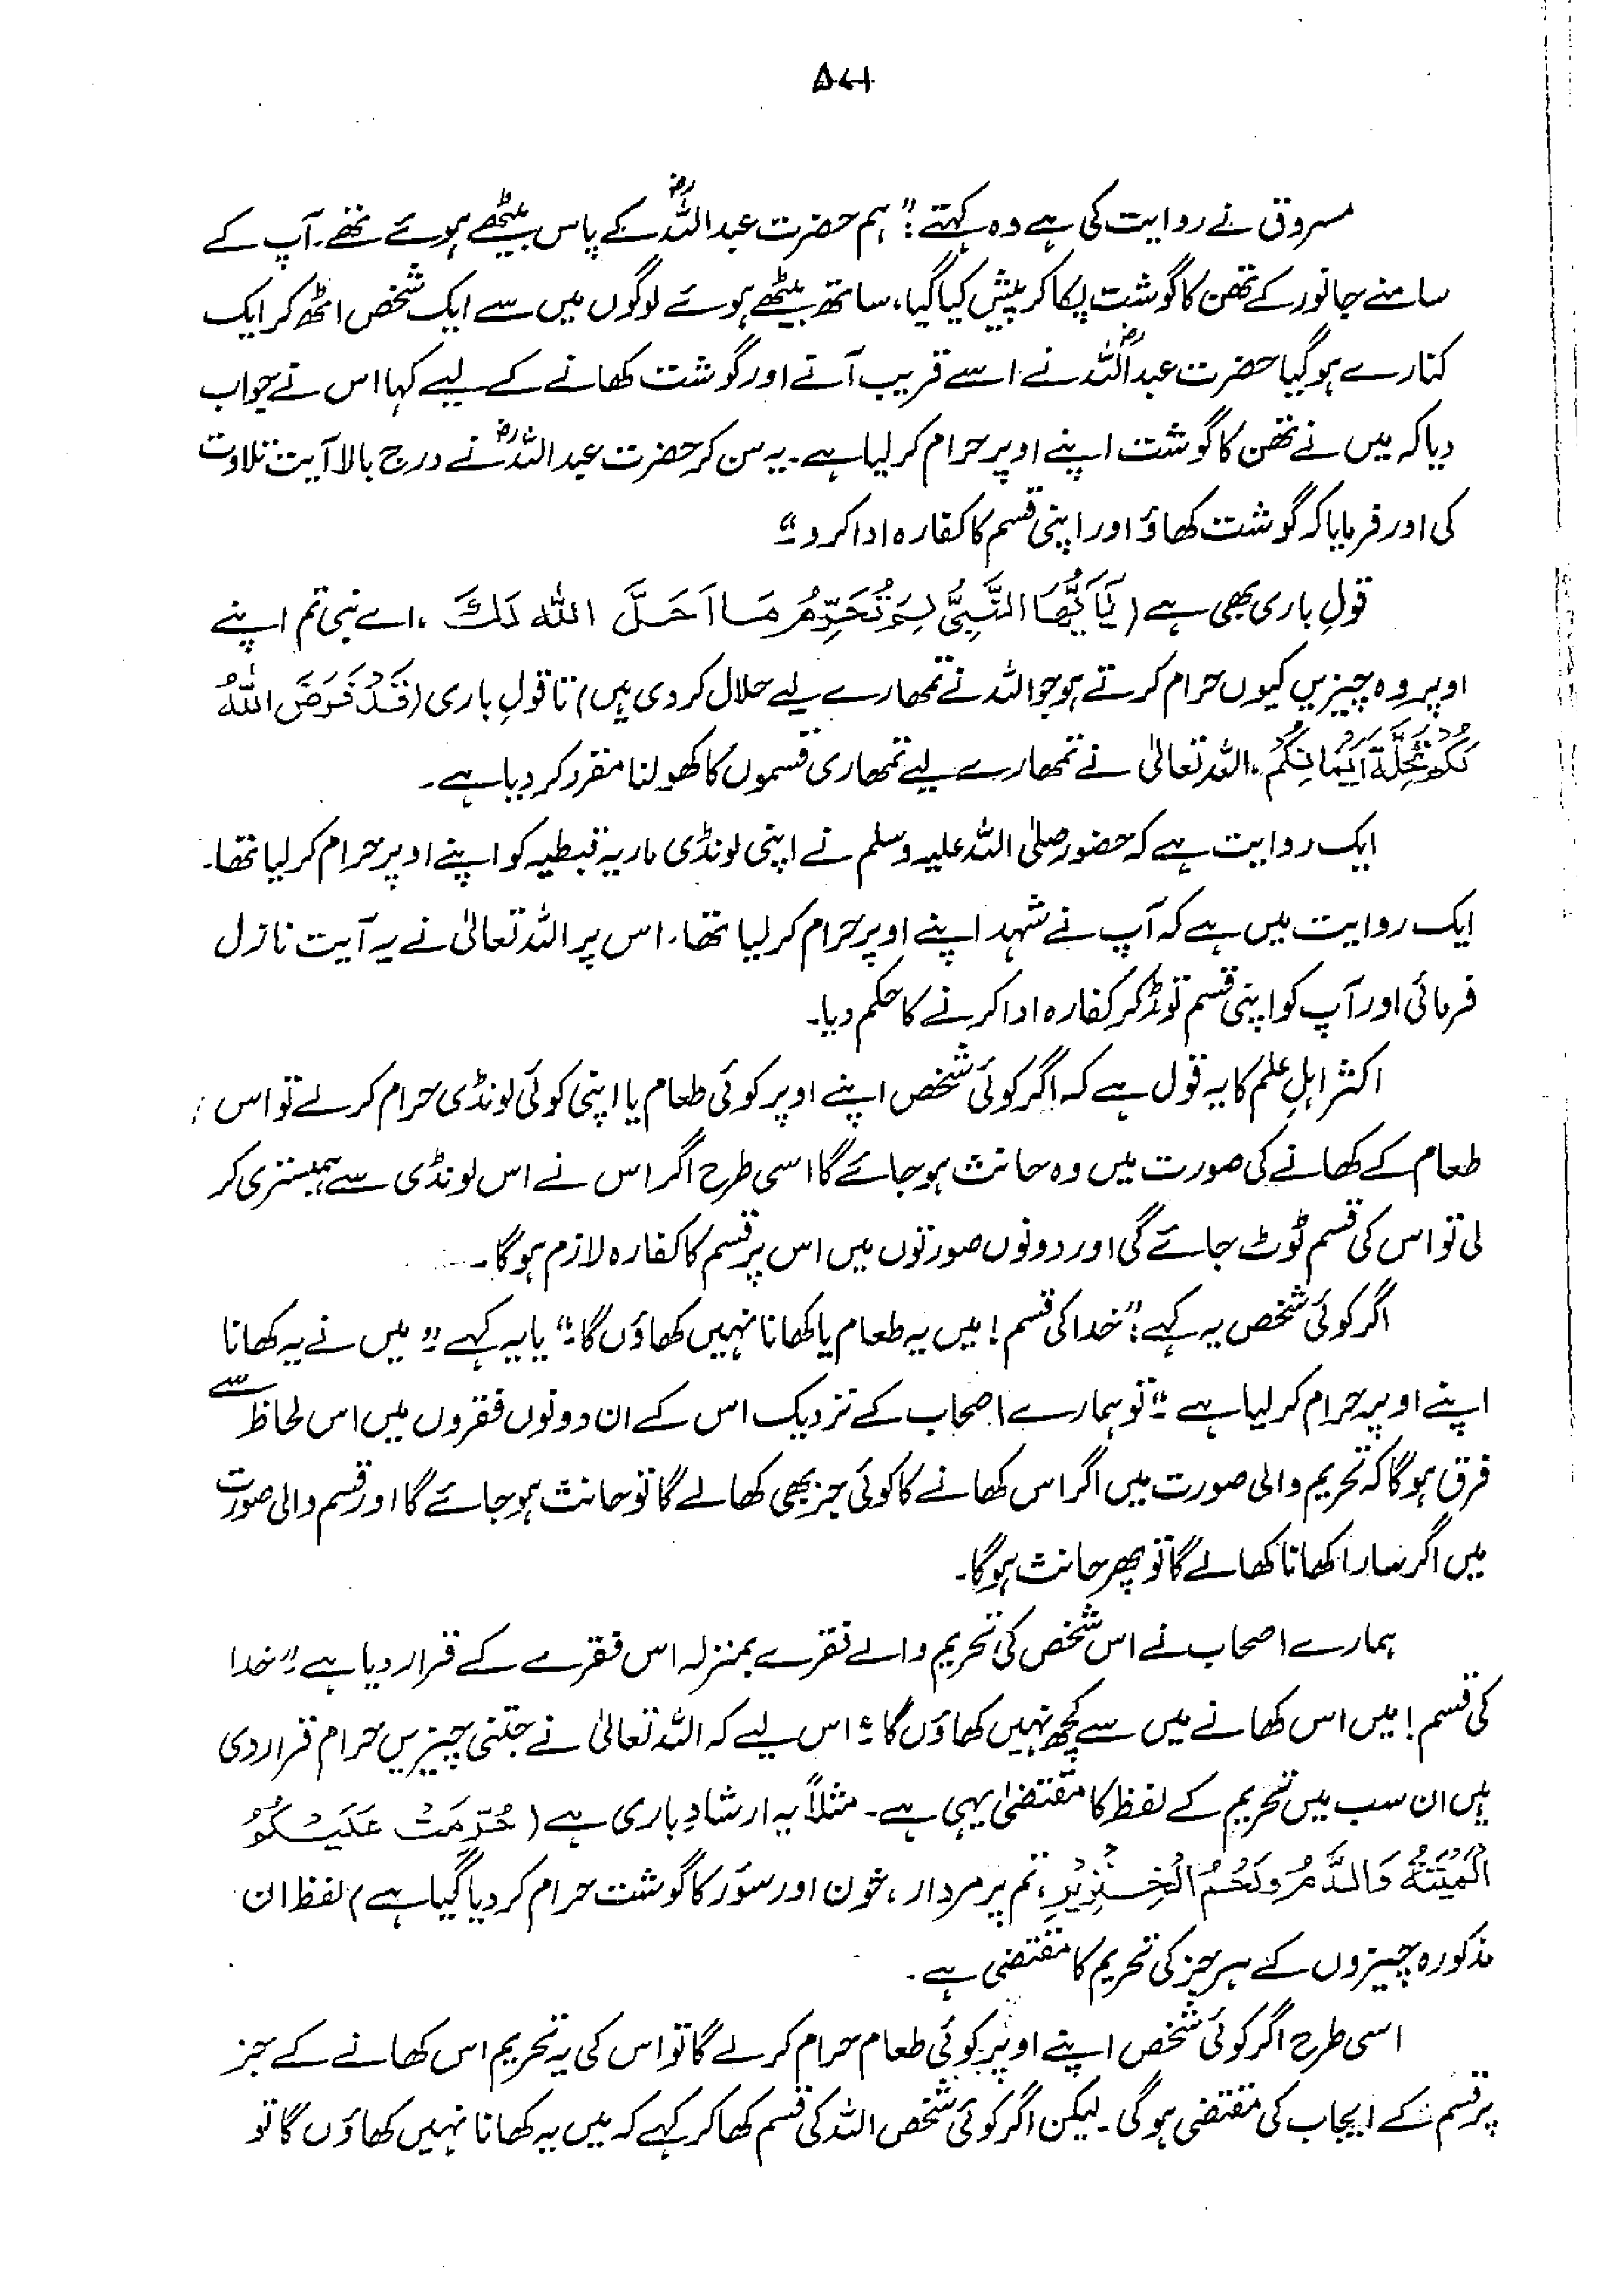 ۵۷۱
مسروق نے روایت کی ہے وہ کہتے: "ہم حضرت عبداللہؓ کے پاس بیٹھے ہوئے تھے۔ آپ کے
سامنے جانور کے تھن کا گوشت پکا کر پیش کیا گیا، ساتھ بیٹھے ہوئے لوگوں میں سے ایک شخص اٹھ کر ایک
کنارے ہو گیا حضرت عبداللہؓ نے اسے قریب آنے اور گوشت کھانے کے لیے کہا اس نے جواب
دیا کہ میں نے تھن کا گوشت اپنے اوپر حرام کر لیا ہے۔ یہ سن کر حضرت عبداللہؓ نے درج بالا آیت تلاوت
کی اور فرمایا کہ گوشت کھاؤ اور اپنی قسم کا کفارہ ادا کرو۔"
قولِ باری بھی ہے (یٰۤاَیُّهَا النَّبِیُّ لِمَ تُحَرِّمُ مَا اَحَلَّ اللّٰهُ لَكَ، اے نبی تم اپنے
اوپر وہ چیزیں کیوں حرام کرتے ہو جو اللہ نے تمھارے لیے حلال کر دی ہیں) تا قولِ باری (قَدْ فَرَضَ اللّٰهُ
لَكُمْ تَحِلَّةَ اَیْمَانِكُمْ، اللہ تعالیٰ نے تمھارے لیے تمھاری قسموں کا کھولنا مقرر کر دیا ہے۔
ایک روایت ہے کہ حضور صلی اللہ علیہ وسلم نے اپنی لونڈی ماریہ قبطیہ کو اپنے اوپر حرام کر لیا تھا۔
ایک روایت میں ہے کہ آپ نے شہد اپنے اوپر حرام کر لیا تھا۔ اس پر اللہ تعالیٰ نے یہ آیت نازل
فرمائی اور آپ کو اپنی قسم توڑ کر کفارہ ادا کرنے کا حکم دیا۔
اکثر اہلِ علم کا یہ قول ہے کہ اگر کوئی شخص اپنے اوپر کوئی طعام یا اپنی کوئی لونڈی حرام کر لے تو اس
طعام کے کھانے کی صورت میں وہ حانث ہو جائے گا اسی طرح اگر اس نے اس لونڈی سے ہمبستری کر
لی تو اس کی قسم ٹوٹ جائے گی اور دونوں صورتوں میں اس پر قسم کا کفارہ لازم ہو گا۔
اگر کوئی شخص یہ کہے: "خدا کی قسم! میں یہ طعام یا کھانا نہیں کھاؤں گا۔" یا یہ کہے "میں نے یہ کھانا
اپنے اوپر حرام کر لیا ہے۔" تو ہمارے اصحاب کے نزدیک اس کے ان دونوں فقروں میں اس لحاظ سے
فرق ہو گا کہ تحریم والی صورت میں اگر اس کھانے کا کوئی جز بھی کھا لے گا تو حانث ہو جائے گا اور قسم والی صورت
میں اگر سارا کھانا کھا لے گا تو پھر حانث ہو گا۔
ہمارے اصحاب نے اس شخص کی تحریم والے فقرے بمنزلہ اس فقرے کے قرار دیا ہے۔ "خدا
کی قسم! میں اس کھانے میں سے کچھ نہیں کھاؤں گا۔" اس لیے کہ اللہ تعالیٰ نے جتنی چیزیں حرام قرار دی
ہیں ان سب میں تحریم کے لفظ کا مقتضیٰ یہی ہے۔ مثلاً یہ ارشادِ باری ہے (حُرِّمَتْ عَلَیْكُمُ
الْمَیْتَةُ وَالدَّمُ وَلَحْمُ الْخِنْزِیْرِ، تم پر مردار، خون اور سؤر کا گوشت حرام کر دیا گیا ہے) لفظ ان
مذکورہ چیزوں کے ہر جز کی تحریم کا مقتضی ہے۔
اسی طرح اگر کوئی شخص اپنے اوپر کوئی طعام حرام کر لے گا تو اس کی یہ تحریم اس کھانے کے جز
پر قسم کے ایجاب کی مقتضی ہو گی۔ لیکن اگر کوئی شخص اللہ کی قسم کھا کر کہے کہ میں یہ کھانا نہیں کھاؤں گا تو